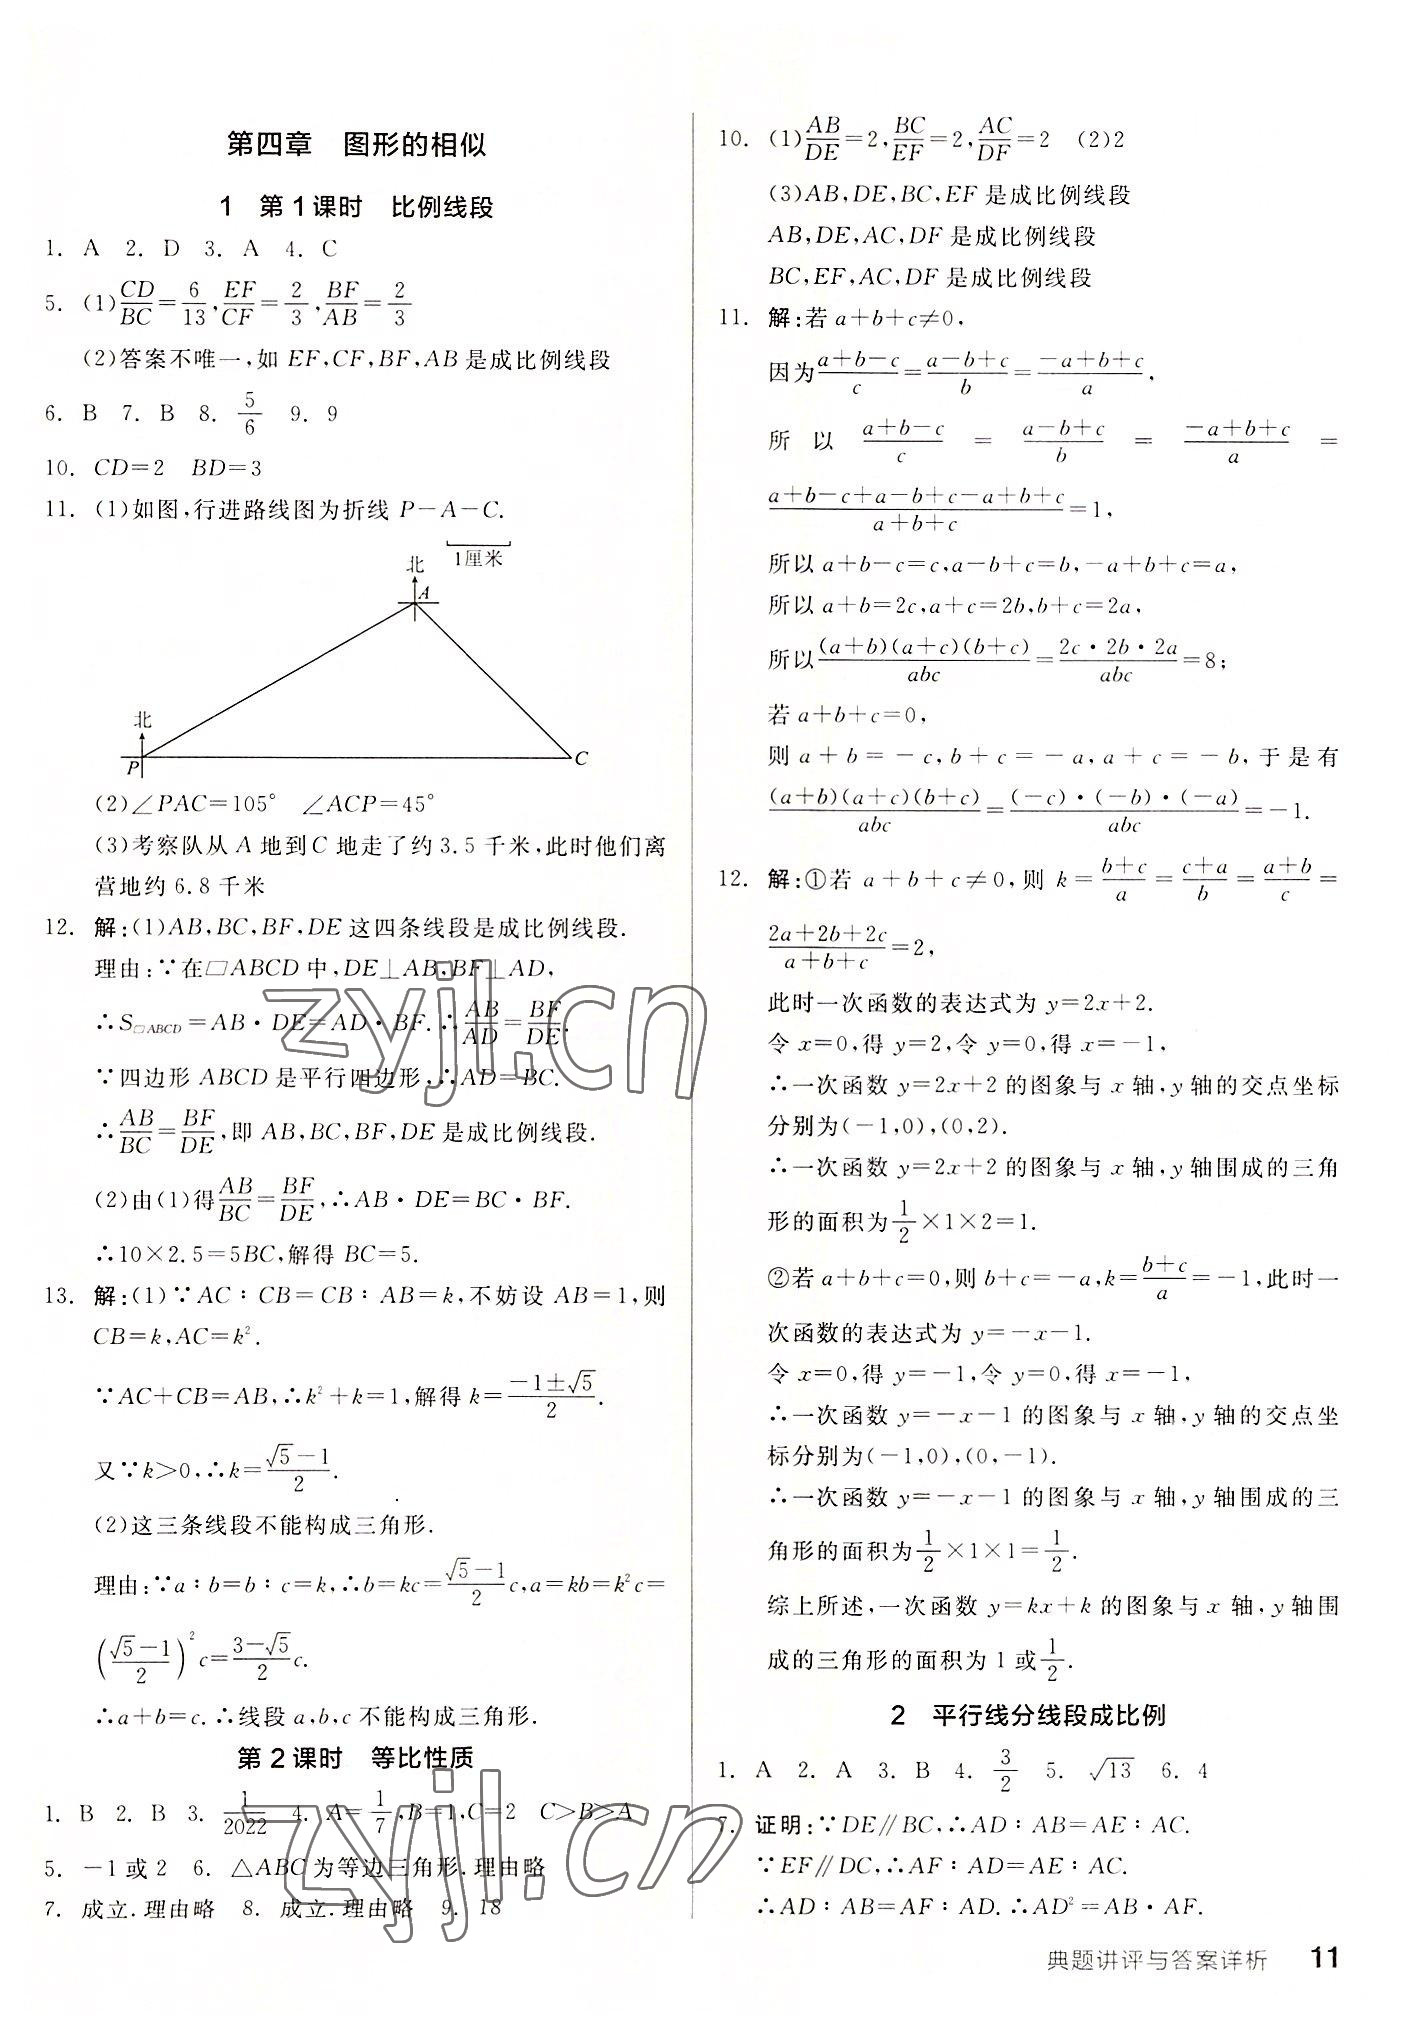 第四章　图形的相似
1　第1课时　比例线段
1. A　2. D　3. A　4. C
5. (1)CD/BC=6/13,EF/CF=2/3,BF/AB=2/3
(2)答案不唯一,如 EF,CF,BF,AB 是成比例线段
6. B　7. B　8. 5/6　9. 9
10. CD=2　BD=3
11. (1)如图,行进路线图为折线 P-A-C.
1厘米
北
A
北
P
C
(2)∠PAC=105°　∠ACP=45°
(3)考察队从 A 地到 C 地走了约 3.5 千米,此时他们离
营地约 6.8 千米
12. 解:(1)AB,BC,BF,DE 这四条线段是成比例线段.
理由:∵在□ABCD 中,DE⊥AB,BF⊥AD,
∴S□ABCD=AB·DE=AD·BF.∴AB/AD=BF/DE.
∵四边形 ABCD 是平行四边形,∴AD=BC.
∴AB/BC=BF/DE,即 AB,BC,BF,DE 是成比例线段.
(2)由(1)得AB/BC=BF/DE,∴AB·DE=BC·BF.
∴10×2.5=5BC,解得 BC=5.
13. 解:(1)∵AC∶CB=CB∶AB=k,不妨设 AB=1,则
CB=k,AC=k².
∵AC+CB=AB,∴k²+k=1,解得 k=(-1±√5)/2.
又∵k>0,∴k=(√5-1)/2.
(2)这三条线段不能构成三角形.
理由:∵a∶b=b∶c=k,∴b=kc=(√5-1)/2 c,a=kb=k²c=
((√5-1)/2)²c=(3-√5)/2 c.
∴a+b=c.∴线段 a,b,c 不能构成三角形.
第2课时　等比性质
1. B　2. B　3. 1/2022　4. A=1/7,B=1,C=2　C>B>A
5. -1或2　6. △ABC为等边三角形.理由略
7. 成立.理由略　8. 成立.理由略　9. 18
10. (1)AB/DE=2,BC/EF=2,AC/DF=2　(2)2
(3)AB,DE,BC,EF 是成比例线段
AB,DE,AC,DF 是成比例线段
BC,EF,AC,DF 是成比例线段
11. 解:若 a+b+c≠0,
因为(a+b-c)/c=(a-b+c)/b=(-a+b+c)/a,
所以 (a+b-c)/c = (a-b+c)/b = (-a+b+c)/a =
(a+b-c+a-b+c-a+b+c)/(a+b+c)=1,
所以 a+b-c=c,a-b+c=b,-a+b+c=a,
所以 a+b=2c,a+c=2b,b+c=2a,
所以(a+b)(a+c)(b+c)/abc=2c·2b·2a/abc=8;
若 a+b+c=0,
则 a+b=-c,b+c=-a,a+c=-b,于是有
(a+b)(a+c)(b+c)/abc=(-c)·(-b)·(-a)/abc=-1.
12. 解:①若 a+b+c≠0,则 k=(b+c)/a=(c+a)/b=(a+b)/c=
(2a+2b+2c)/(a+b+c)=2,
此时一次函数的表达式为 y=2x+2.
令 x=0,得 y=2,令 y=0,得 x=-1,
∴一次函数 y=2x+2 的图象与 x 轴,y 轴的交点坐标
分别为(-1,0),(0,2).
∴一次函数 y=2x+2 的图象与 x 轴,y 轴围成的三角
形的面积为1/2×1×2=1.
②若 a+b+c=0,则 b+c=-a,k=(b+c)/a=-1,此时一
次函数的表达式为 y=-x-1.
令 x=0,得 y=-1,令 y=0,得 x=-1,
∴一次函数 y=-x-1 的图象与 x 轴,y 轴的交点坐
标分别为(-1,0),(0,-1).
∴一次函数 y=-x-1 的图象与 x 轴,y 轴围成的三
角形的面积为1/2×1×1=1/2.
综上所述,一次函数 y=kx+k 的图象与 x 轴,y 轴围
成的三角形的面积为 1 或1/2.
2　平行线分线段成比例
1. A　2. A　3. B　4. 3/2　5. √13　6. 4
7. 证明:∵DE∥BC,∴AD∶AB=AE∶AC.
∵EF∥DC,∴AF∶AD=AE∶AC.
∴AD∶AB=AF∶AD.∴AD²=AB·AF.
典题讲评与答案详析　11
zyjl.cn
zyjl.cn